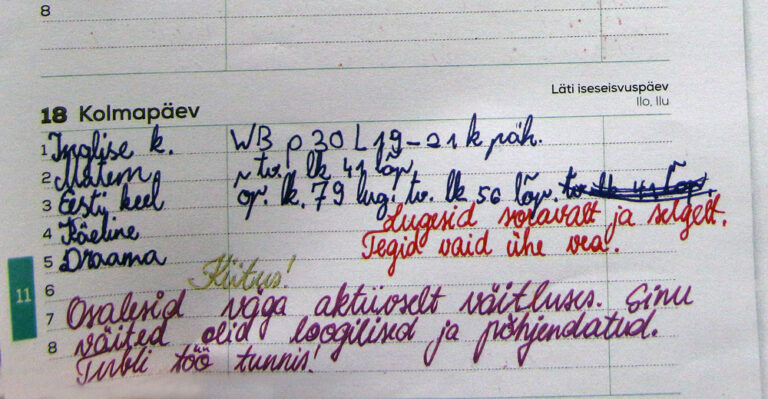 8
Läti iseseisvuspäev
18 Kolmapäev
Ilo, Ilu
1 Inglise k. WB p 30 L 19-21 k päh.
2 Matem. tv. lk 41 lõp.
3 Eesti keel õp. lk. 79 lug. tv. lk 56 lõp. tv. lk 41 lõp.
Lugesid soravalt ja selgelt.
4 Käeline
Tegid vaid ühe vea.
5 Draama
Kiitus!
6
11
Osalesid väga aktiivselt väitluses. Sinu
7
väited olid loogilised ja põhjendatud.
8
Tubli töö tunnis!